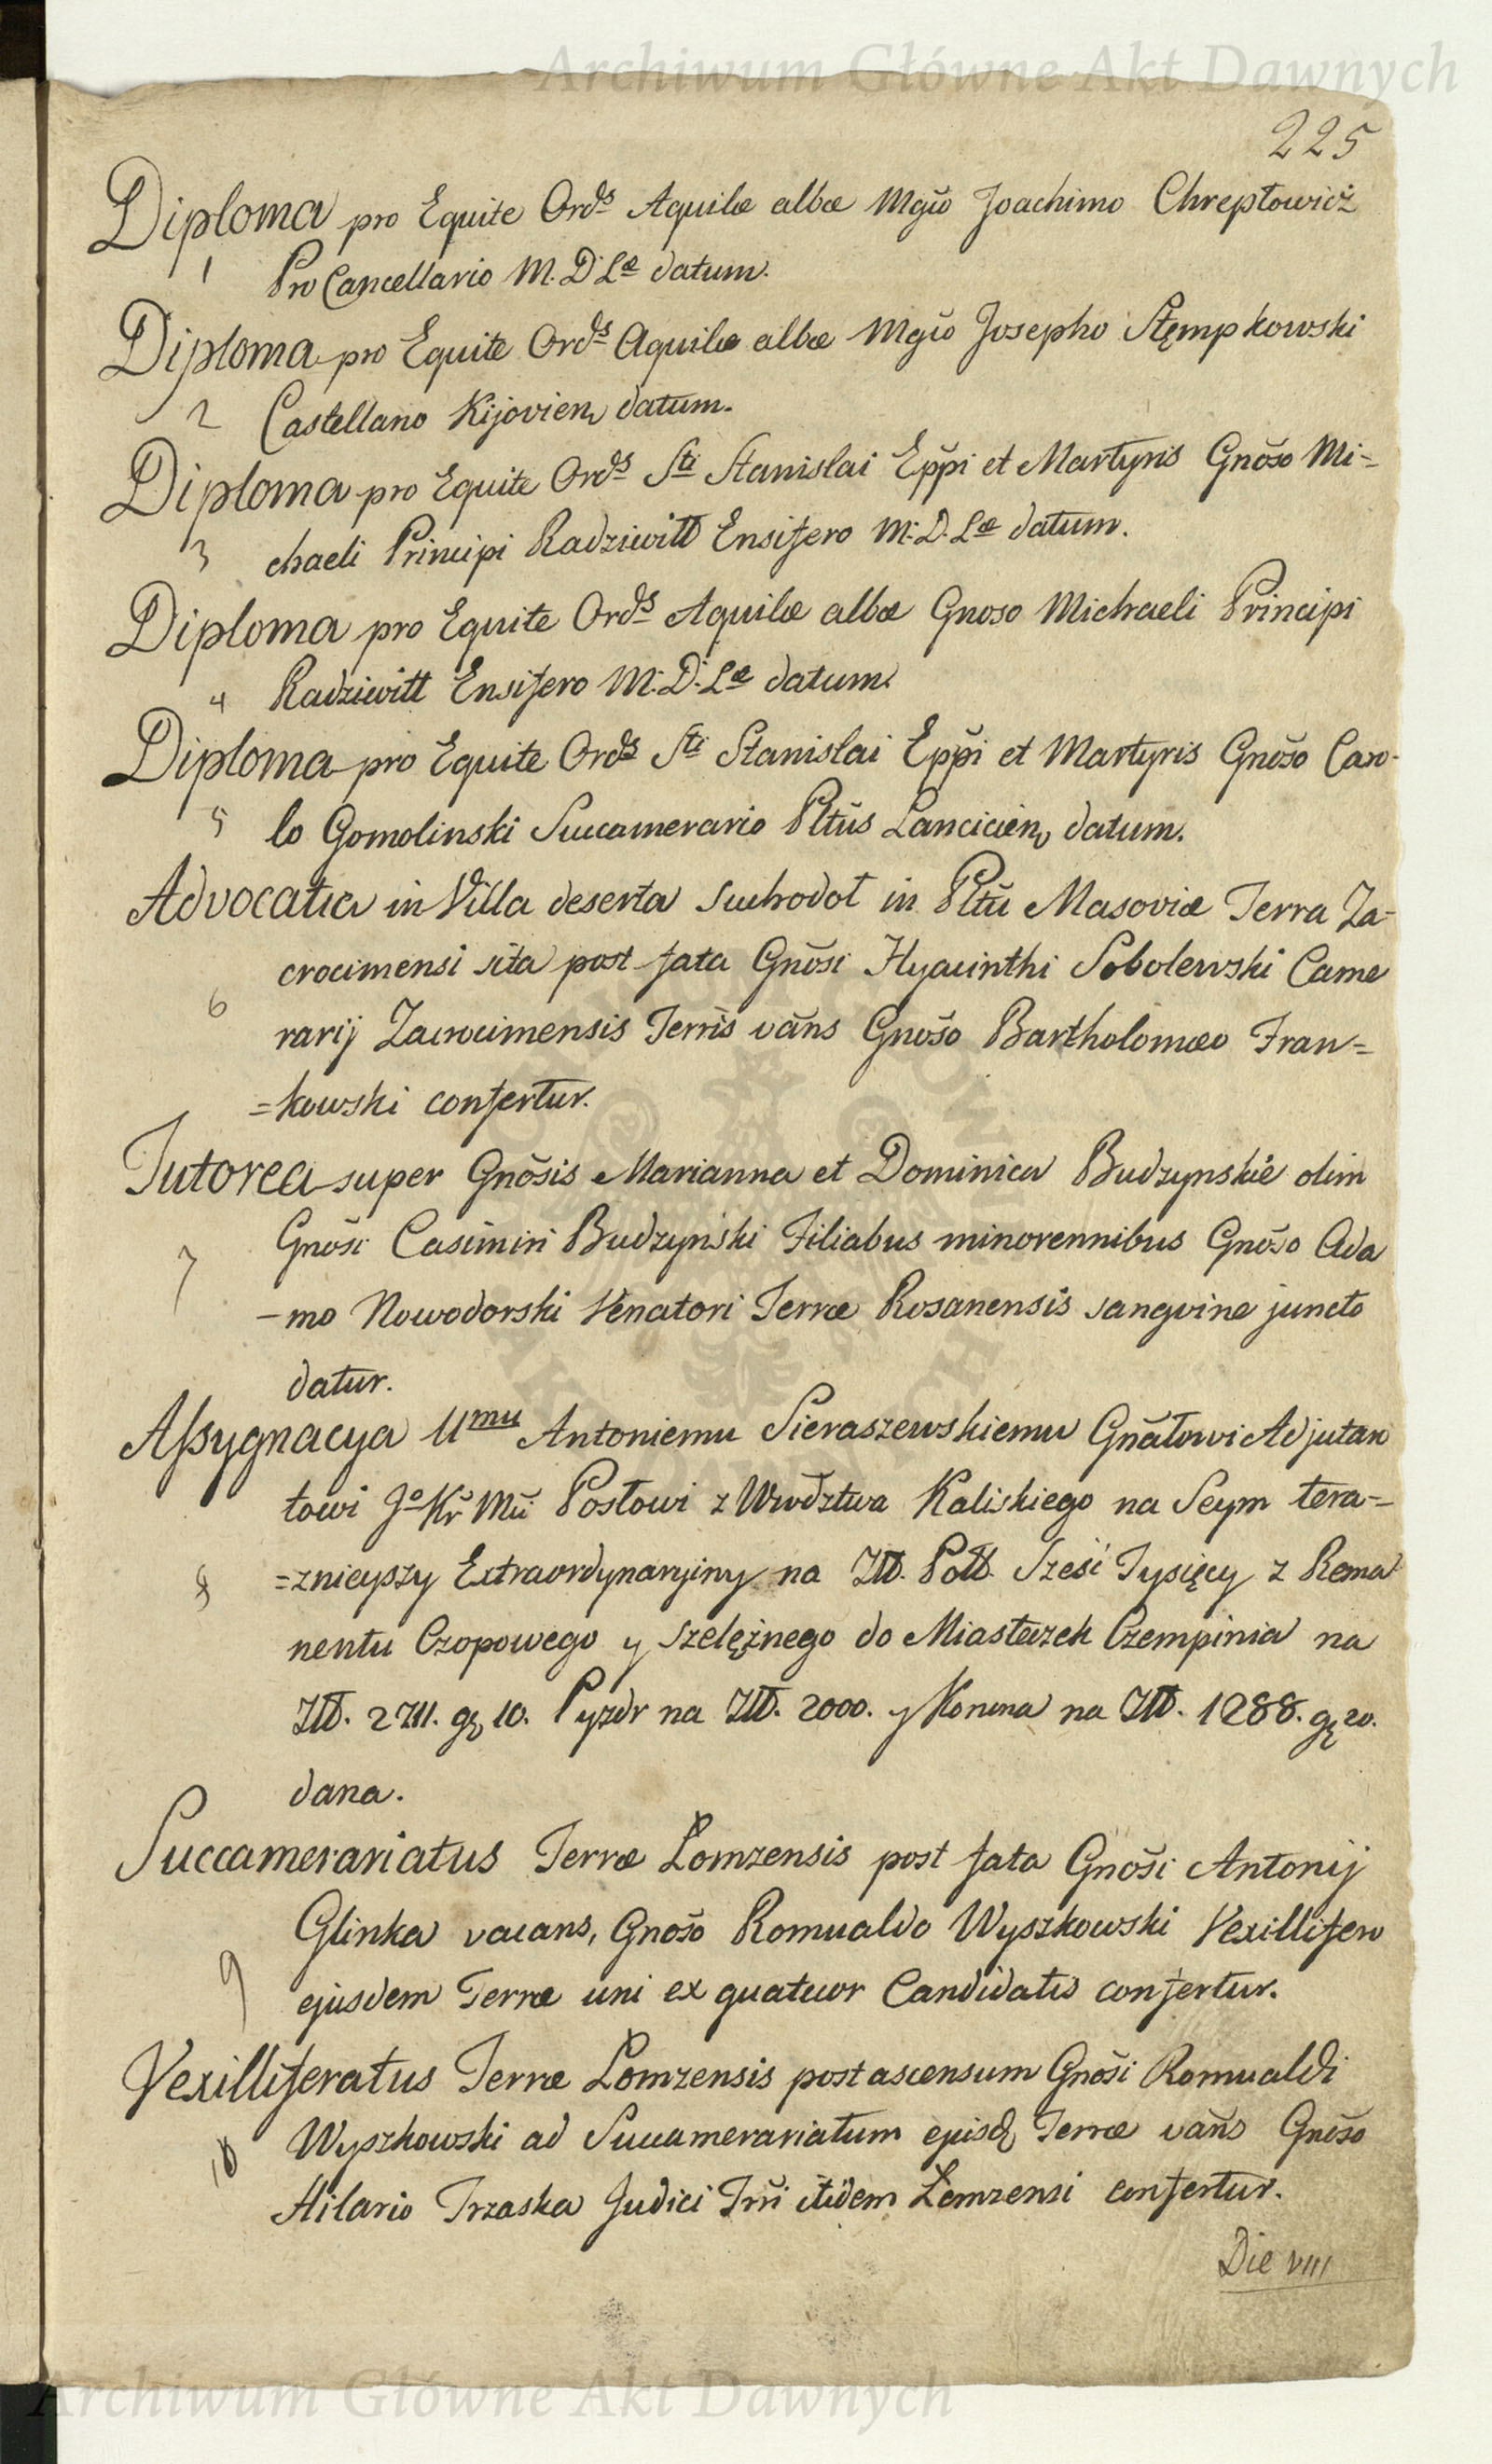 Archiwum Główne Akt Dawnych
225
Diploma pro Equite Ordˢ Aquilæ albæ Mgčo Joachimo Chreptowicz
1 Pro Cancellario M. D. Læ datum.
Diploma pro Equite Ordˢ Aquilæ albæ Mgčo Josepho Stępkowski
2 Castellano Kijovien datum.
Diploma pro Equite Ordˢ Sti Stanislai Eppi et Martyris Gnõso Mi-
3 chaeli Principi Radziwiłł Ensifero M. D. Læ datum.
Diploma pro Equite Ordˢ Aquilæ albæ Gnoso Michaeli Principi
4 Radziwiłł Ensifero M. D. Læ datum.
Diploma pro Equite Ordˢ Sti Stanislai Eppi et Martyris Gnõso Caro-
5 lo Gomolinski Succamerario Pltũs Lancicien datum.
Advocatia in Villa deserta Suchodoł in Pltũ Masoviæ Terra Za-
crocimensi sita post fata Gnõsi Hyacinthi Sobolewski Came
6 rarij Zacrocimensis Terris vãns Gnõso Bartholomæo Fran=
=kowski confertur.
Tutorea super Gnõsis Marianna et Dominica Budzynskie olim
Gnõsi Casimiri Budzyński Filiabus minorennibus Gnõso Ada
7 -mo Nowodorski Venatori Terræ Rosanensis sangvine juncto
datur.
Assygnacya Umu Antoniemu Sieraszewskiemu Gnãłowi Adjutan
towi Jo Kr̃ Mči Posłowi z Wwdztwa Kaliskiego na Seym tera=
8 =znieyszy Extraordynaryiny na Złł. Poll. Sześć Tysięcy z Rema
nentu Czopowego y Szelężnego do Miasteczek Czempinia na
Złł. 2711. gę 10. Pyzdr na Złł. 2000. y Konina na Złł. 1288. gę 20.
dana.
Succamerariatus Terræ Łomzensis post fata Gnõsi Antonij
Glinka vacans, Gnõso Romualdo Wyszkowski Vexillifero
9 ejusdem Terræ uni ex quatuor Candidatis confertur.
Vexilliferatus Terræ Łomzensis post ascensum Gnõsi Romualdi
Wyszkowski ad Succamerariatum ejusd Terræ vãns Gnõso
10 Hilario Trzaska Judici Trri itidem Łomzensi confertur.
Die VIII
Archiwum Główne Akt Dawnych